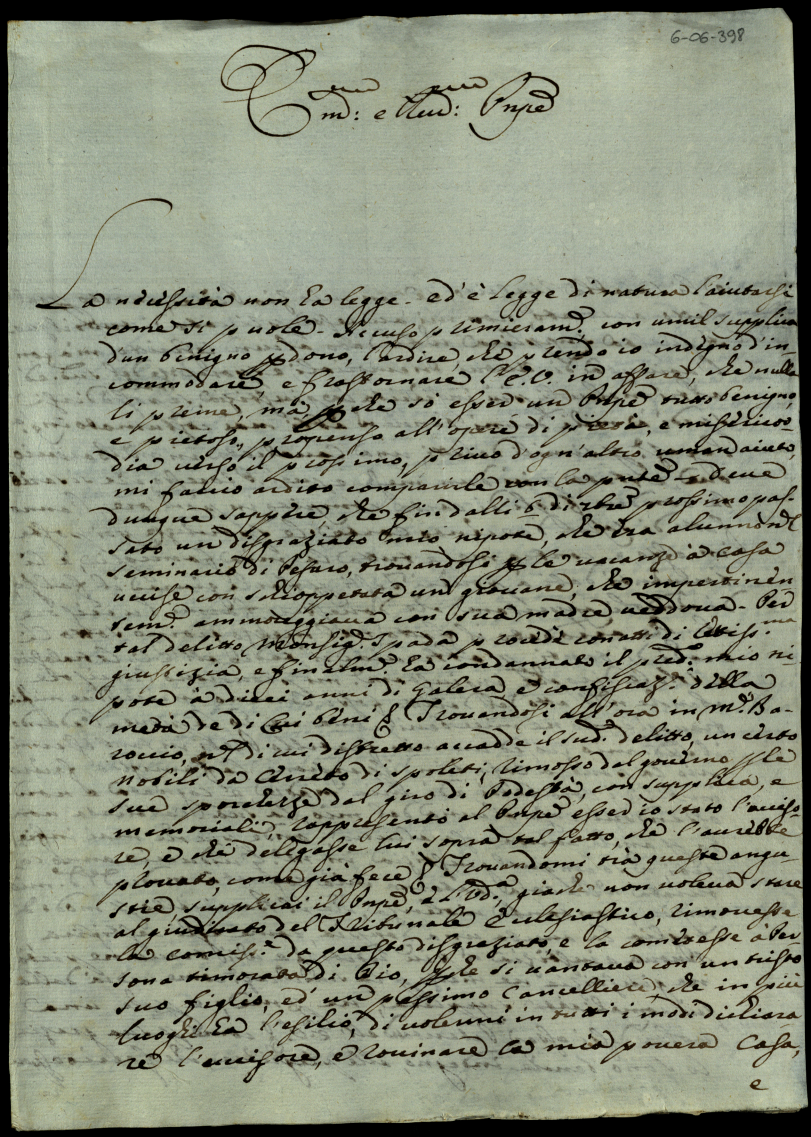 6-06-398
Em:mo e Rev:mo Pnpe
La necessità non ha legge. ed' è legge di natura l'aiutarsi
come si puole. Accuso primieram:te con umil supplica
d'un benigno pdono, l'ardire, che prendo io indegno d'in-
commodare, e frastornare l'E.V. in affare, che nulla
li preme, mà pche sò esser un Pnpe tutto benigno,
e pietoso, propenso all'opere di pietà, e misericor-
dia verso il prossimo, privo d'ogn'altro uman aiuto,
mi faccio ardito comparirle con la pnte. e deve
dunque sapere, che fin dalli 6 di 7bre prossimo pas-
sato un disgraziato mio nipote, che era alunno nel
seminario di Pesaro, trovandosi p le vacanze à casa
uccise con schioppettata un giovane, che impertinen
tem:te ammoreggiava con sua madre vedova. Per
tal delitto Monsig:r Spada procedè con atti di rettiss:ma
giustizia, e finalm:te ha condannato il pred:o mio ni
pote à dieci anni di Galera, e confiscaz:e della
metà de di lui beni. Trovandosi all'ora in M:te Ba-
roccio, nel di cui distretto accadde il sud:o delitto, un certo
nobili da Cerreto di Spoleti, rimosso dal governo p le
sue sporchezze dal giro di Podestà, con supplica, e
memoriali, rappresentò al Pnpe esser io stato l'ucciso-
re, e che delegasse lui sopra tal fatto, che l'averebbe
provato, come già fece. Trovandomi trà queste angu-
stie, supplicai il Pnpe, giachè non voleva stare
al giudicato del Tribunale Ecclesiastico, rimovesse
la comiss:e da questo disgraziato, e la comettesse à Per
sona timorata di Dio, pche si vantava con un tristo
suo figlio, ed' un pessimo Cancelliere, che in più
luoghi ha l'esilio, di volermi in tutti i modi dichiara
re l'uccisore, e rovinare la mia povera Casa,
e